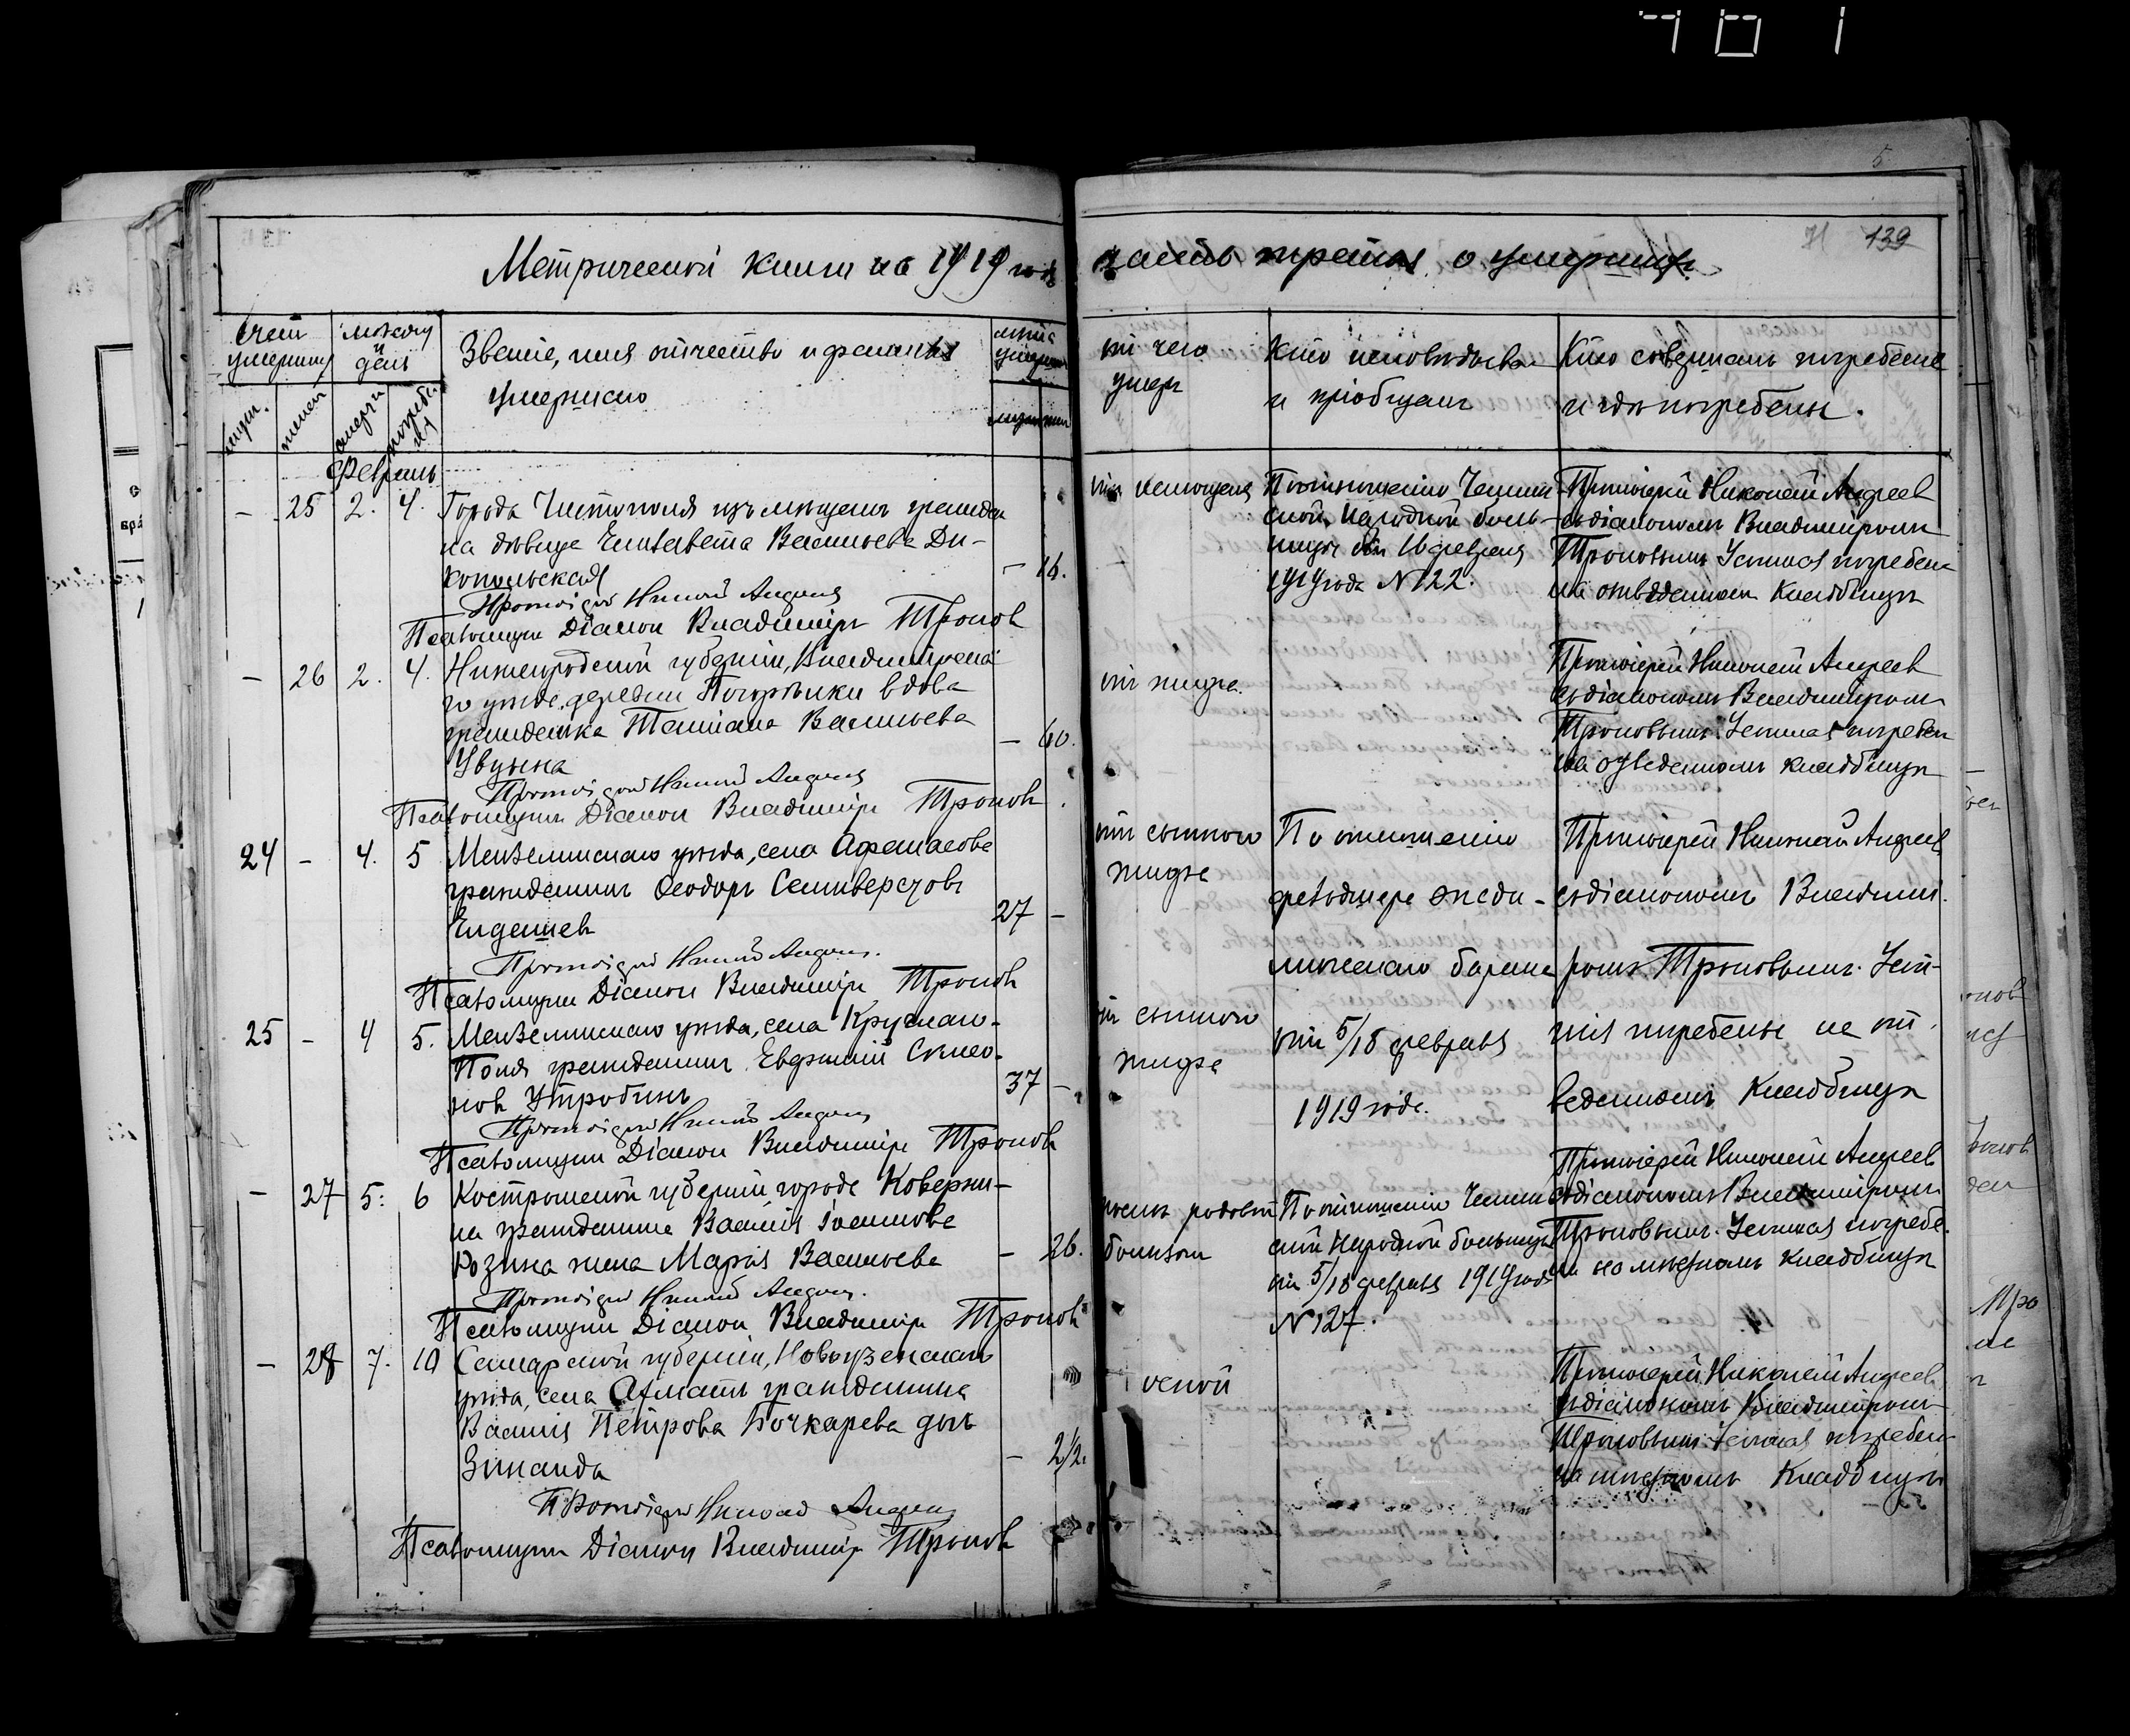 701
5
139
Метрической книги на 1919 годъ
часть третья о умершихъ
Счет умершихъ
Месяцъ и день
Званіе, имя отчество и фамилія
умершаго
лета умершаго
отъ чего
умеръ
Кто исповедывалъ
и пріобщалъ
Кто совершалъ погребеніе
и где погребены.
Февраль
- 25 2. 4. Города Чистополя изъ мещанъ граждан
ка девица Елизавета Васильева Ди-
копольская
- 16.
Протоіерей Николай Андреев
Псаломщикъ Діаконъ Владиміръ Троновъ
отъ истощенія
По отношенію Чистополь-
ской Народной боль-
ницы отъ 16 февраля
1919 года № 122.
Протоіерей Николай Андреев
съ діакономъ Владиміромъ
Троновымъ Устиномъ погребена
на отведенномъ кладбище
- 26 2. 4. Нижегородской губерніи, Владимірска
го уезда, деревни Погорелки вдова
гражданка Татіана Васильева
- 60.
Протоіерей Николай Андреев
Псаломщикъ Діаконъ Владиміръ Троновъ
отъ тифа.
Протоіерей Николай Андреев
съ діакономъ Владиміромъ
Троновымъ погребена
на отведенномъ кладбище
24 - 4. 5 Мензелинскаго уезда, села Афанасова
гражданинъ Феодоръ Селиверстовъ
Елдашев
27 -
Протоіерей Николай Андреев.
Псаломщикъ Діаконъ Владиміръ Троновъ
отъ сыпного
тифа
По отношенію
фельдшера
отъ 5/18 февраля
1919 года.
Протоіерей Николай Андреев
съ діакономъ Владимі-
ромъ Троновымъ.
погребены на от
веденномъ кладбище
25 - 4 5. Мензелинскаго уезда, села Круглаго-
Поля гражданинъ Евфимій Симео-
нов Утробинъ
37 -
Протоіерей Николай Андреев
Псаломщикъ Діаконъ Владиміръ Троновъ
отъ сыпного
тифа
- 27 5. 6 Костромской губерніи города Коверни-
на гражданина Василія Іоаннова
Розина жена Марія Васильева
- 26.
Протоіерей Николай Андреев.
Псаломщикъ Діаконъ Владиміръ Троновъ
после родовой
болезни
По отношенію Чистополь
ской Народной больницы
отъ 5/18 февраля 1919 года
№ 127.
Протоіерей Николай Андреев
съ діакономъ Владиміромъ
Троновымъ. погребе-
на на местномъ кладбище
- 28 7. 10 Самарской губерніи, Новоузенскаго
уезда, села Ахматъ гражданина
Василія Петрова Бочкарева дочь
Зинаида
- 2 1/2.
Протоіерей Николай Андреев
Псаломщикъ Діаконъ Владиміръ Троновъ
оспой
Протоіерей Николай Андреев
съ діакономъ Владиміромъ
Троновымъ погребена
на местномъ кладбище